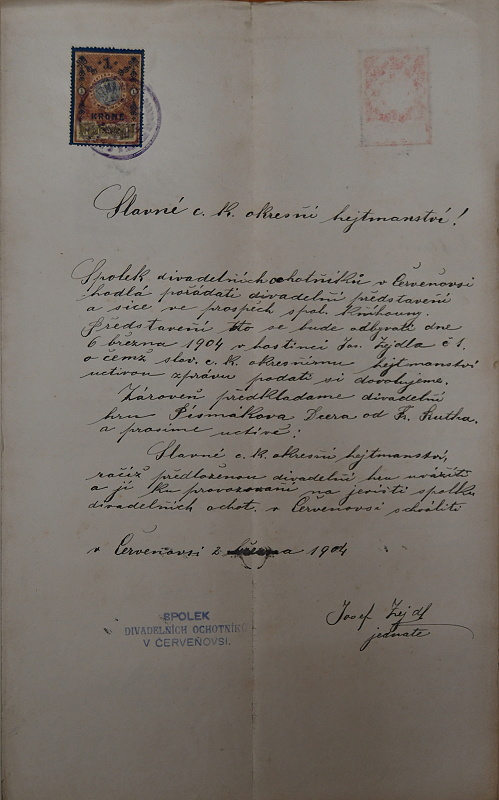 1
KRONE
Slavné c. k. okresní hejtmanství!
Spolek divadelních ochotníků v Červeňovsi
hodlá pořádati divadelní představení
a sice ve prospěch spol. knihovny.
Představení to se bude odbývati dne
6 března 1904 v hostinci Jos. Zejdla č 1.
o čemž slav. c. k. okresnímu hejtmanství
uctivou zprávu podati si dovolujeme.
Zároveň předkladame divadelní
hru Písmákova Dcera od Fr. Rutha.
a prosíme uctivě:
Slavné c. k. okresní hejtmanství,
račiž předloženou divadelní hru uvážiti
a jí ku provozování na jevišti spolku
divadelních ochot. v Červeňovsi schváliti
v Červeňovsi 2 března 1904
SPOLEK
DIVADELNÍCH OCHOTNÍKŮ
V ČERVEŇOVSI.
Josef Zejdl
jednate